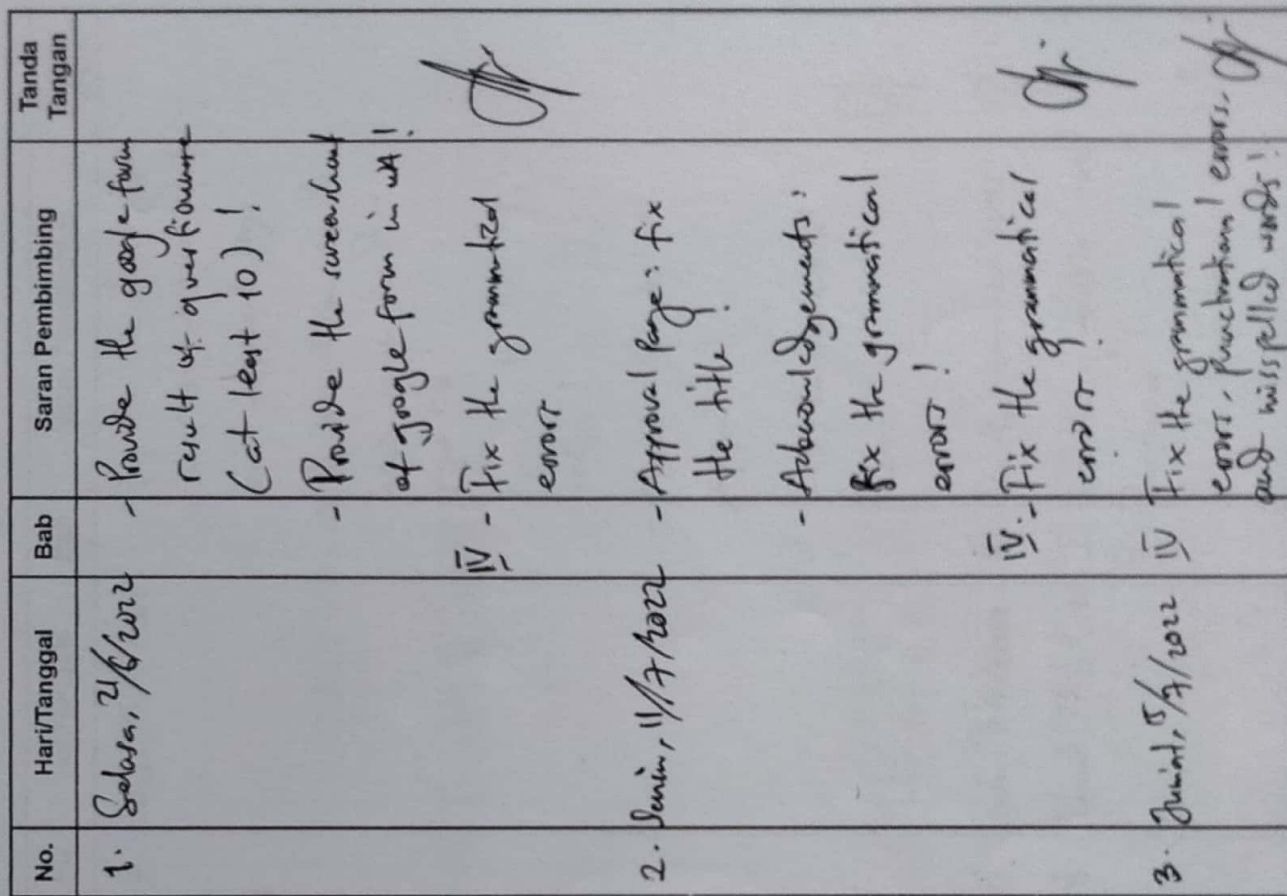 No. Hari/Tanggal Bab Saran Pembimbing Tanda Tangan
1. Selasa, 21/6/2022 - Provide the google form
result of questionnaire
(at least 10)!
- Provide the screenshot
of google form in WA!
IV - Fix the grammatical
errors
2. Senin, 11/7/2022 - Approval Page: fix
the title!
- Acknowledgements:
fix the grammatical
errors!
IV. - Fix the grammatical
errors!
3. Jumat, 15/7/2022 IV Fix the grammatical
errors, punctuational errors,
and misspelled words!